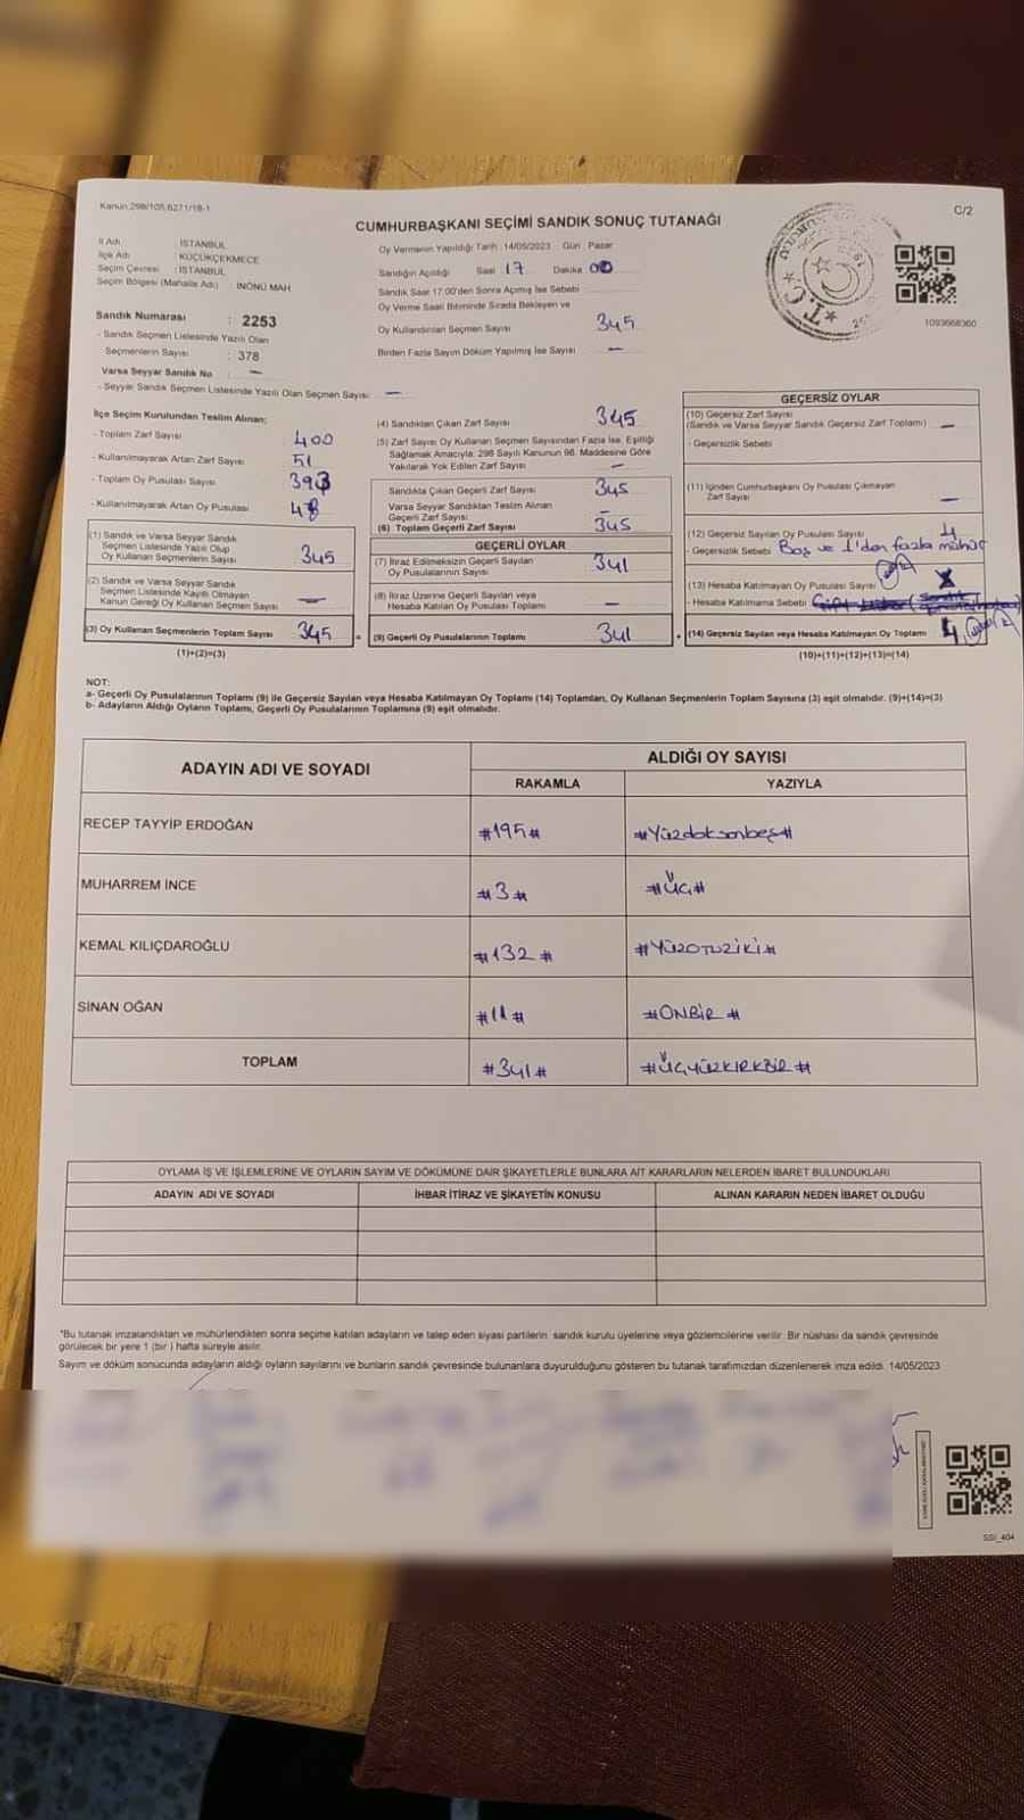 Kanun 298/105,6271/18-1
C/2
CUMHURBAŞKANI SEÇİMİ SANDIK SONUÇ TUTANAĞI
İl Adı : İSTANBUL
İlçe Adı : KÜÇÜKÇEKMECE
Seçim Çevresi : İSTANBUL
Seçim Bölgesi (Mahalle Adı) : İNÖNÜ MAH
Sandık Numarası : 2253
- Sandık Seçmen Listesinde Yazılı Olan
Seçmenlerin Sayısı : 378
Varsa Seyyar Sandık No —
- Seyyar Sandık Seçmen Listesinde Yazılı Olan Seçmen Sayısı: —
Oy Vermenin Yapıldığı Tarih : 14/05/2023 Gün : Pazar
Sandığın Açıldığı Saat 17 Dakika 00
Sandık Saat 17:00'den Sonra Açılmış İse Sebebi
Oy Verme Saati Bitiminde Sırada Bekleyen ve
Oy Kullandırılan Seçmen Sayısı 345
Birden Fazla Sayım Döküm Yapılmış İse Sayısı —
1093668360
İlçe Seçim Kurulundan Teslim Alınan:
- Toplam Zarf Sayısı 400
- Kullanılmayarak Artan Zarf Sayısı 51
- Toplam Oy Pusulası Sayısı 393
- Kullanılmayarak Artan Oy Pusulası 48
(1) Sandık ve Varsa Seyyar Sandık
Seçmen Listesinde Yazılı Olup
Oy Kullanan Seçmenlerin Sayısı 345
(2) Sandık ve Varsa Seyyar Sandık
Seçmen Listesinde Kayıtlı Olmayan
Kanun Gereği Oy Kullanan Seçmen Sayısı —
(3) Oy Kullanan Seçmenlerin Toplam Sayısı 345
(1)+(2)=(3)
(4) Sandıktan Çıkan Zarf Sayısı 345
(5) Zarf Sayısı Oy Kullanan Seçmen Sayısından Fazla İse, Eşitliği
Sağlamak Amacıyla; 298 Sayılı Kanunun 98. Maddesine Göre
Yakılarak Yok Edilen Zarf Sayısı —
Sandıkta Çıkan Geçerli Zarf Sayısı 345
Varsa Seyyar Sandıktan Teslim Alınan
Geçerli Zarf Sayısı —
(6) Toplam Geçerli Zarf Sayısı 345
GEÇERLİ OYLAR
(7) İtiraz Edilmeksizin Geçerli Sayılan
Oy Pusulalarının Sayısı 341
(8) İtiraz Üzerine Geçerli Sayılan veya
Hesaba Katılan Oy Pusulası Toplamı —
= (9) Geçerli Oy Pusulalarının Toplamı 341
GEÇERSİZ OYLAR
(10) Geçersiz Zarf Sayısı
(Sandık ve Varsa Seyyar Sandık Geçersiz Zarf Toplamı) —
- Geçersizlik Sebebi
(11) İçinden Cumhurbaşkanı Oy Pusulası Çıkmayan
Zarf Sayısı —
(12) Geçersiz Sayılan Oy Pusulası Sayısı 4
- Geçersizlik Sebebi Boş ve 1'den fazla mühür
(13) Hesaba Katılmayan Oy Pusulası Sayısı
- Hesaba Katılmama Sebebi
+ (14) Geçersiz Sayılan veya Hesaba Katılmayan Oy Toplamı 4
(10)+(11)+(12)+(13)=(14)
NOT:
a- Geçerli Oy Pusulalarının Toplamı (9) ile Geçersiz Sayılan veya Hesaba Katılmayan Oy Toplamı (14) Toplamları, Oy Kullanan Seçmenlerin Toplam Sayısına (3) eşit olmalıdır. (9)+(14)=(3)
b- Adayların Aldığı Oyların Toplamı, Geçerli Oy Pusulalarının Toplamına (9) eşit olmalıdır.
ADAYIN ADI VE SOYADI
ALDIĞI OY SAYISI
RAKAMLA YAZIYLA
RECEP TAYYİP ERDOĞAN #195# #Yüzdoksanbeş#
MUHARREM İNCE #3# #ÜÇ#
KEMAL KILIÇDAROĞLU #132# #YÜZOTUZİKİ#
SİNAN OĞAN #11# #ONBİR#
TOPLAM #341# #ÜÇYÜZKIRKBİR#
OYLAMA İŞ VE İŞLEMLERİNE VE OYLARIN SAYIM VE DÖKÜMÜNE DAİR ŞİKAYETLERLE BUNLARA AİT KARARLARIN NELERDEN İBARET BULUNDUKLARI
ADAYIN ADI VE SOYADI İHBAR İTİRAZ VE ŞİKAYETİN KONUSU ALINAN KARARIN NEDEN İBARET OLDUĞU
*Bu tutanak imzalandıktan ve mühürlendikten sonra seçime katılan adayların ve talep eden siyasi partilerin sandık kurulu üyelerine veya gözlemcilerine verilir. Bir nüshası da sandık çevresinde
görülecek bir yere 1 (bir) hafta süreyle asılır.
Sayım ve döküm sonucunda adayların aldığı oyların sayılarını ve bunların sandık çevresinde bulunanlara duyurulduğunu gösteren bu tutanak tarafımızdan düzenlenerek imza edildi. 14/05/2023
SSI_404